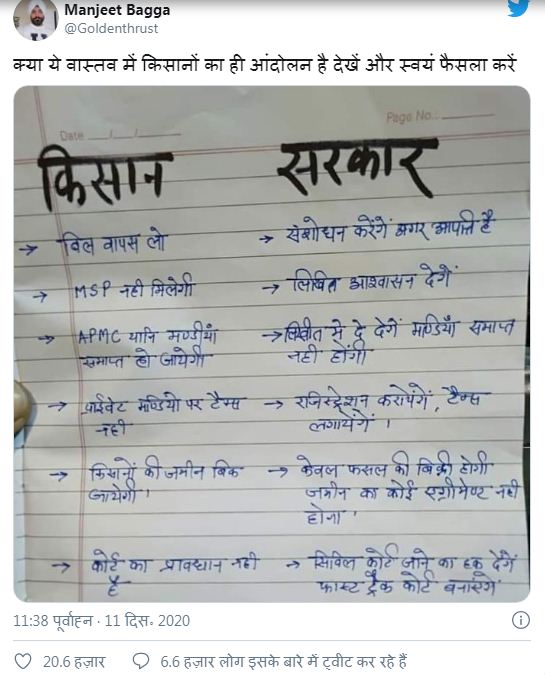 Manjeet Bagga
@Goldenthrust
क्या ये वास्तव में किसानों का ही आंदोलन है देखें और स्वयं फैसला करें
Page No.:
Date
किसान सरकार
→ बिल वापस लो → संशोधन करेंगें अगर आपत्ति है
→ MSP नही मिलेगी → लिखित आश्वासन देगें
→ APMC यानि मण्डीयाँ → लिखीत में दे देगें मण्डियाँ समाप्त
समाप्त हो जायेगी नही होंगी
→ प्राईवेट मण्डियो पर टैक्स → रजिस्ट्रेशन करायेगें, टैक्स
नही लगायेंगें ।
→ किसानों की जमीन बिक → केवल फसल की बिक्री होगी
जायेगी । जमीन का कोई एग्रीमेण्ट नही
होगा ।
→ कोर्ट का प्रावधान नही → सिविल कोर्ट जाने का हक देगें
है फास्ट ट्रैक कोर्ट बनाएंगे
11:38 पूर्वाह्न · 11 दिस॰ 2020
20.6 हज़ार 6.6 हज़ार लोग इसके बारे में ट्वीट कर रहे हैं